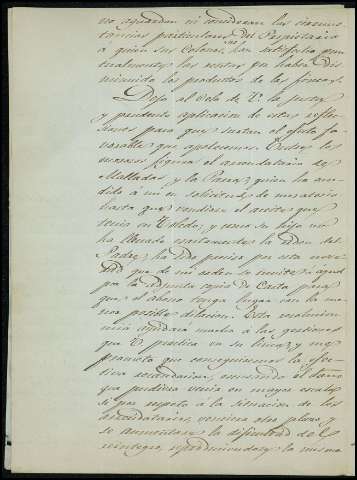 no aguardan ni consideran las circuns
tancias particulares del Propietario
á quien sus Colonos, han satisfecho pun
tualmente las rentas, por haber dis
minuido los productos de las fincas.
Dejo al celo de V. la justa
y prudente aplicacion de estas refle
xiones para que surtan el efecto fa
vorable que apetecemos. Entre los
morosos figura el arrendatario de
Mulladas y la Parra, quien ha acu
dido á mi en solicitud de moratoria
hasta que vendiese el aceite que
tenia en Toledo, y como su hijo no
ha llenado exactamente la orden del
Padre, ha sido preciso por esta nove
dad que de mi orden se remite, aqui
por la adjunta copia de Carta para
que el abono tenga lugar con la me
nos posible dilacion. Esta resolucion
mia ayudará mucho á las gestiones
que V. practica en su linea, y me
prometo que conseguiremos la efec
tiva recaudacion, evitando el daño
que pudiera venir en mayor escala
si por respeto á la situacion de los
arrendatarios, venciera otro plazo y
se aumentase la dificultad del
reintegro, reproduciendose la misma